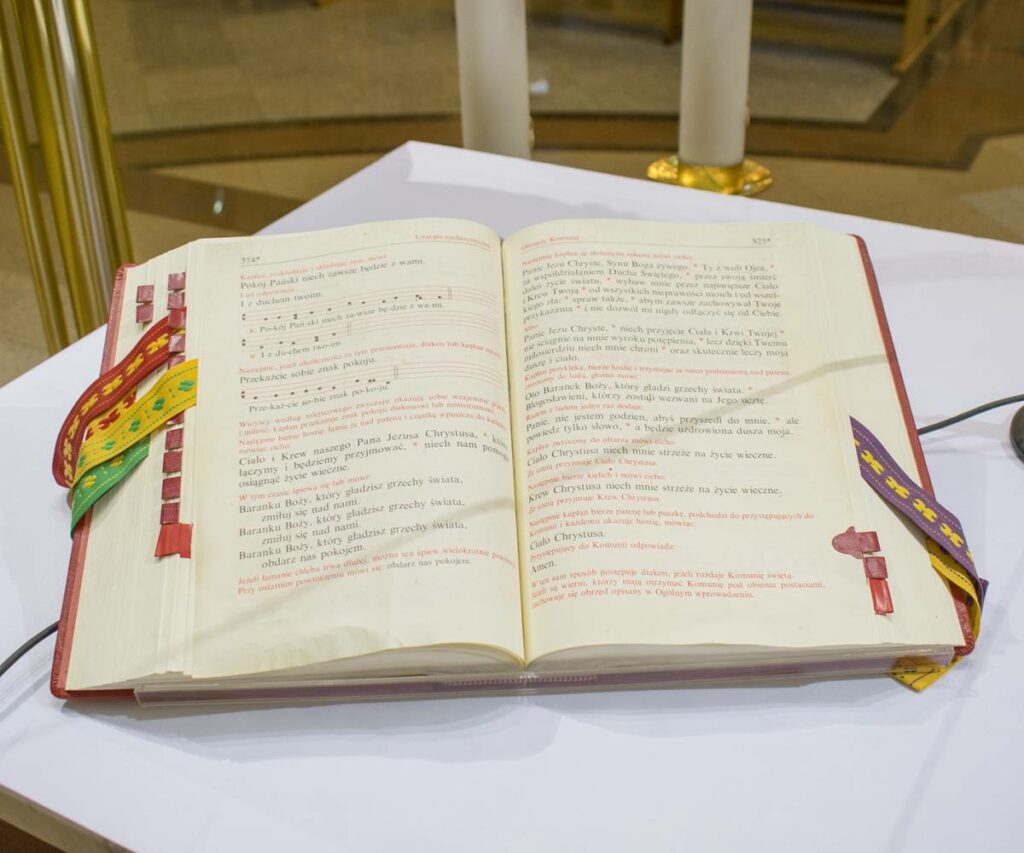 374*
Liturgia eucharystyczna
Kapłan, rozkładając i składając ręce, mówi:
Pokój Pański niech zawsze będzie z wami.
Lud odpowiada:
I z duchem twoim.
K. Pokój Pań-ski niech za-wsze bę-dzie z wa-mi.
W. I z du-chem two-im.
Następnie, jeżeli okoliczności za tym przemawiają, diakon lub kapłan mówi:
Przekażcie sobie znak pokoju.
Prze-każ-cie so-bie znak po-ko-ju.
Wszyscy według miejscowego zwyczaju okazują sobie wzajemnie
i miłość; kapłan przekazuje znak pokoju diakonowi lub ministrantowi.
Następnie bierze hostię, łamie ją nad pateną i cząstkę wpuszcza do kielicha,
mówiąc cicho:
Ciało i Krew naszego Pana Jezusa Chrystusa, * które
łączymy i będziemy przyjmować, * niech nam pomogą
osiągnąć życie wieczne.
W tym czasie śpiewa się lub mówi:
Baranku Boży, który gładzisz grzechy świata,
zmiłuj się nad nami.
Baranku Boży, który gładzisz grzechy świata,
zmiłuj się nad nami.
Baranku Boży, który gładzisz grzechy świata,
obdarz nas pokojem.
Jeżeli łamanie chleba trwa dłużej, można ten śpiew wielokrotnie powtórzyć.
Przy ostatnim powtórzeniu mówi się: obdarz nas pokojem.
Obrzędy Komunii
375*
Następnie kapłan ze złożonymi rękami mówi cicho:
Panie Jezu Chryste, Synu Boga żywego, * Ty z woli Ojca, *
za współdziałaniem Ducha Świętego, * przez swoją śmierć
dałeś życie światu, * wybaw mnie przez najświętsze Ciało
i Krew Twoją * od wszystkich nieprawości moich i od wszel-
kiego zła; * spraw także, * abym zawsze zachowywał Twoje
przykazania * i nie dozwól mi nigdy odłączyć się od Ciebie.
Albo:
Panie Jezu Chryste, * niech przyjęcie Ciała i Krwi Twojej *
nie ściągnie na mnie wyroku potępienia, * lecz dzięki Twemu
miłosierdziu niech mnie chroni * oraz skutecznie leczy moją
duszę i ciało.
Kapłan przyklęka, bierze hostię i trzymając ją nieco podniesioną nad pateną,
zwrócony do ludu, głośno mówi:
Oto Baranek Boży, który gładzi grzechy świata. *
Błogosławieni, którzy zostali wezwani na Jego ucztę.
Razem z ludem jeden raz dodaje:
Panie, nie jestem godzien, abyś przyszedł do mnie, * ale
powiedz tylko słowo, * a będzie uzdrowiona dusza moja.
Kapłan zwrócony do ołtarza mówi cicho:
Ciało Chrystusa niech mnie strzeże na życie wieczne.
Ze czcią przyjmuje Ciało Chrystusa.
Następnie bierze kielich i mówi cicho:
Krew Chrystusa niech mnie strzeże na życie wieczne.
Ze czcią przyjmuje Krew Chrystusa.
Następnie kapłan bierze patenę lub puszkę, podchodzi do przystępujących do
Komunii i każdemu ukazuje hostię, mówiąc:
Ciało Chrystusa.
Przystępujący do Komunii odpowiada:
Amen.
W ten sam sposób postępuje diakon, jeżeli rozdaje Komunię świętą.
Jeżeli są wierni, którzy mają otrzymać Komunię pod obiema postaciami,
zachowuje się obrzęd opisany w Ogólnym wprowadzeniu.